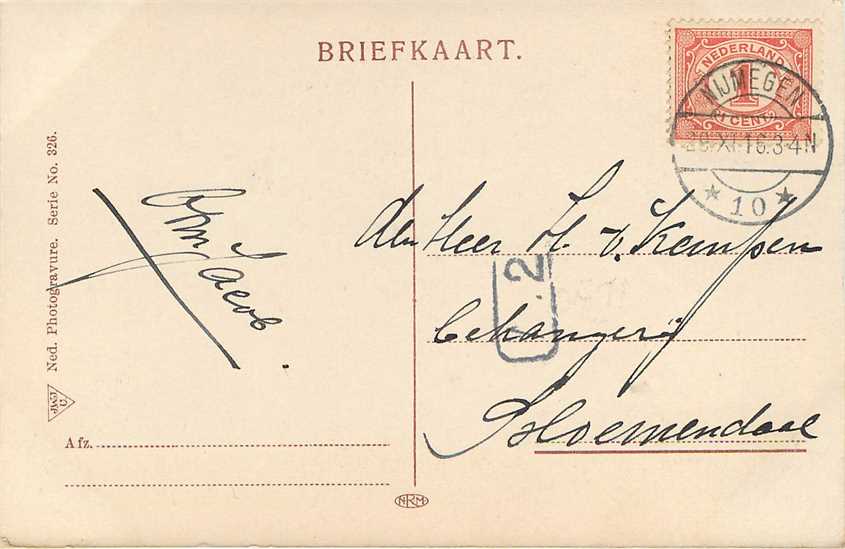 BRIEFKAART.
NEDERLAND
1
CENT
NIJMEGEN
XI 16.3-4N
10
Ned. Photogravure. Serie No. 326.
Oom
Jacob.
den Heer H. v. Kempen
Behangerij
Bloemendaal
2
Afz.
NRM